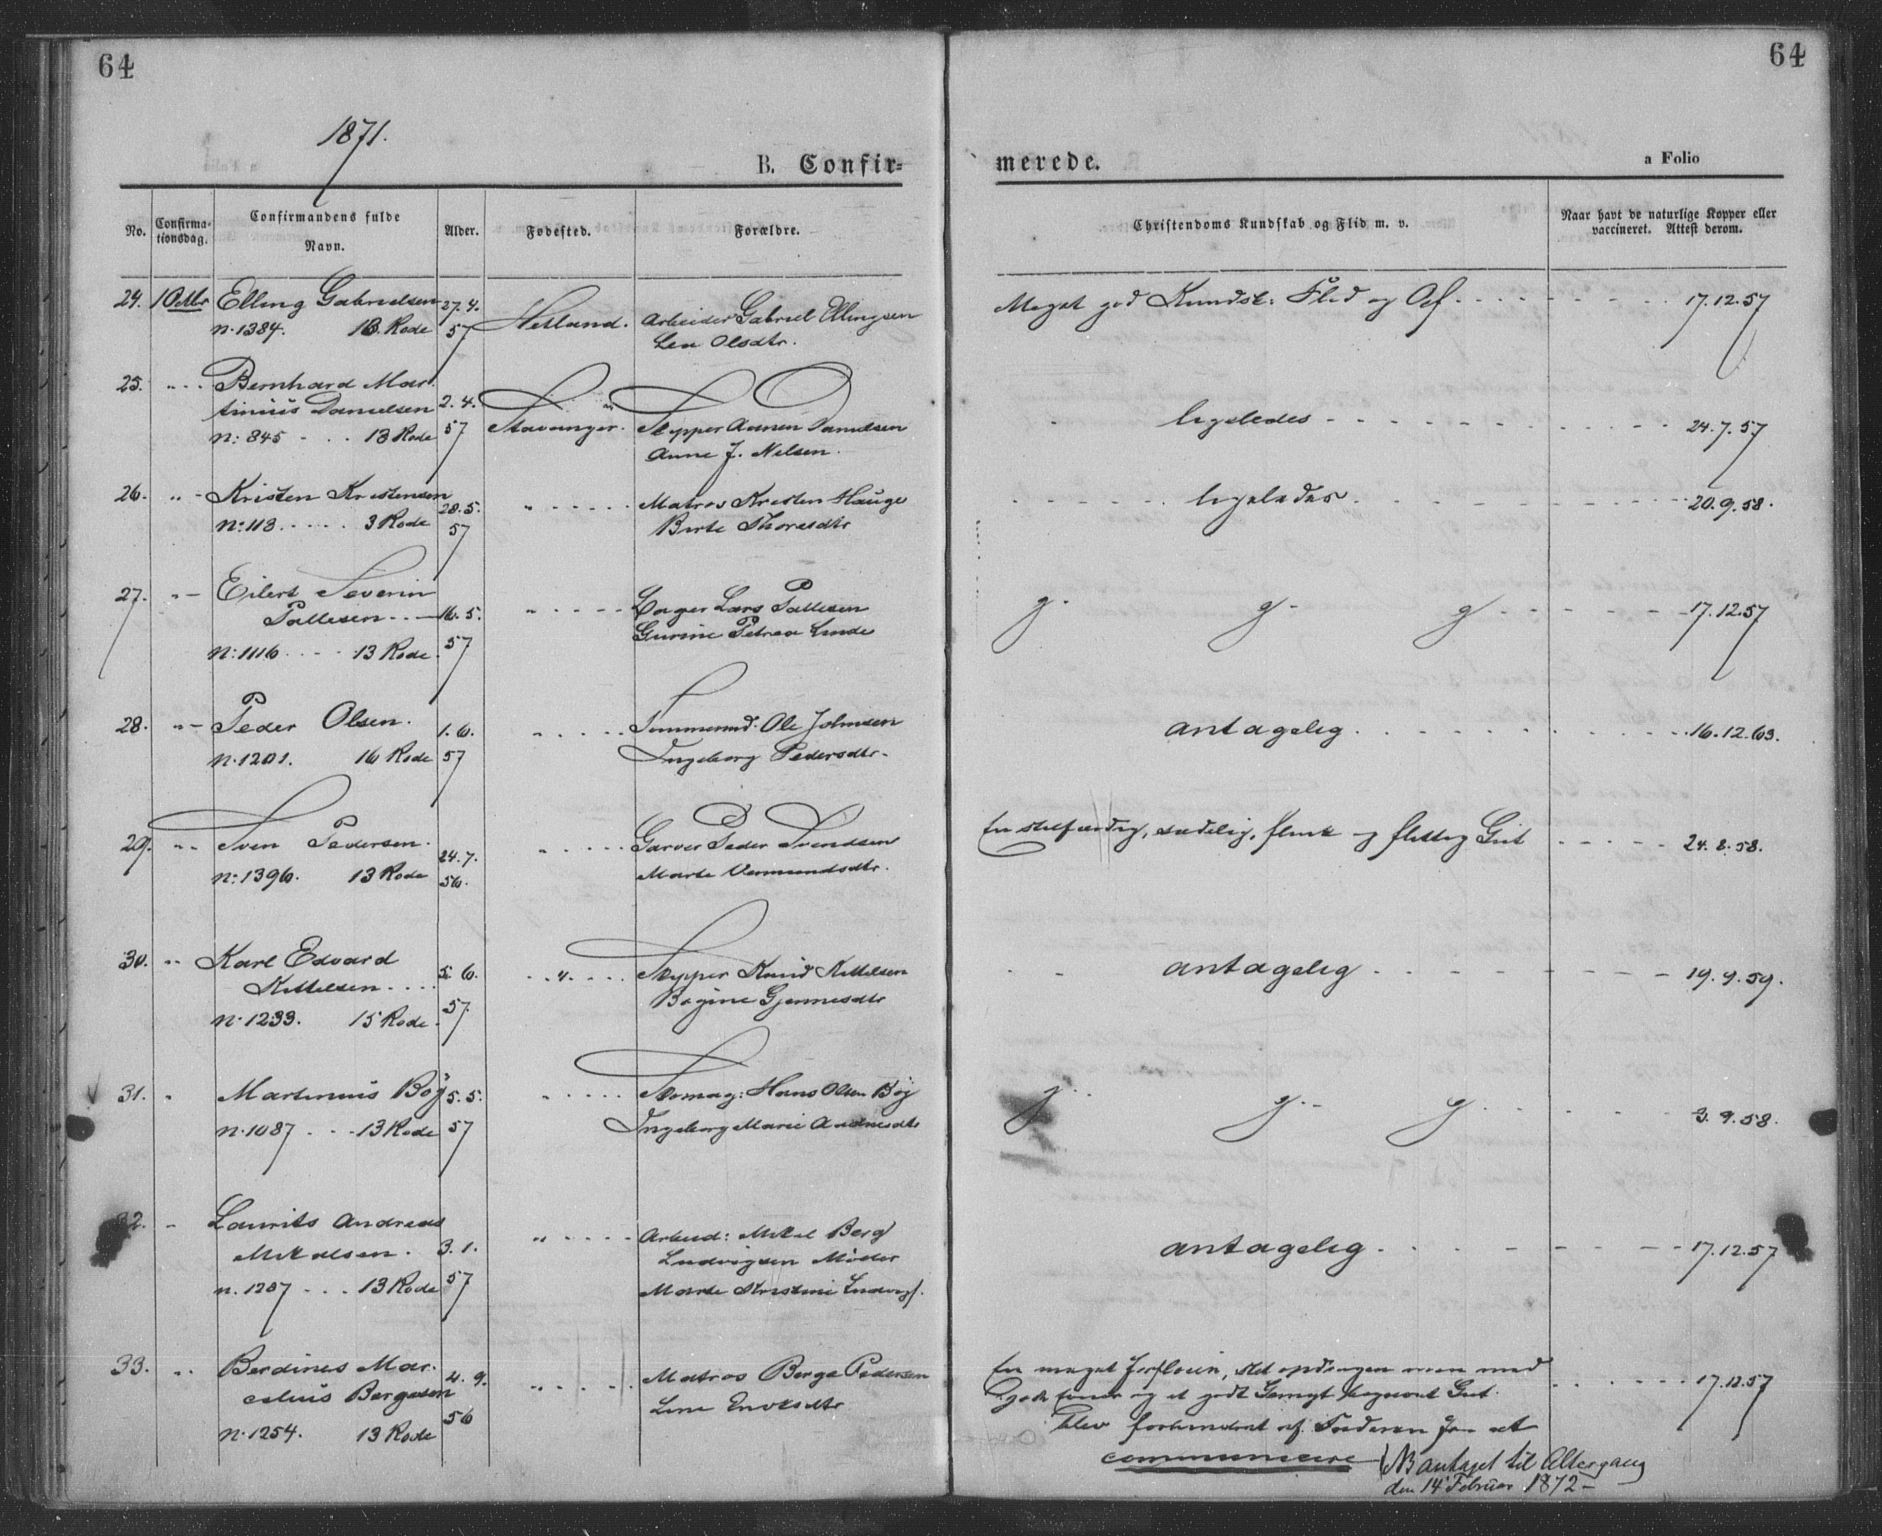 64
64
1871.
B. Confir=
merede.
a Folio
No.
Confirma-
tionsdag.
Confirmandens fulde
Navn.
Alder.
Fødested.
Forældre.
Christendoms Kundskab og Flid m. v.
Naar havt de naturlige Kopper eller
vaccineret. Attest derom.
24. 1 Elling Gabrielsen 27.4.
n. 1384. 13 Rode 57 Hetland. Arbeider Gabriel Ellingsen
Lea Olsdtr.
Meget god Kundsk: Flid og Opf. 17.12.57
25. Bernhard Mar-
tinius Danielsen 2.4.
n: 845 13 Rode 57 Stavanger. Skipper Danielsen
Anne J. Nilsen.
ligeledes 24.7.57
26. Kristen Kristensen 28.5.
n: 113 3 Rode 57 " Matros Kristen Hauge
Birte Thoresdtr
ligeledes 20.9.58.
27. Eilert Severin
Pallesen 16.5.
n: 1116 13 Rode 57 " Lars Pallesen
Gurine Petrea Linde
g. g. g 17.12.57
28. Peder Olsen. 1.6.
n. 1201. 16 Rode 57 " Tømmermd. Ole Johnsen
Ingeborg Pedersdtr.
antagelig 16.12.63.
29. Sven Pedersen. 24.7.
n: 1396. 13 Rode 56. " Garver Peder Svendsen
Marte Vermundsdtr.
En stilfærdig, sædelig, flink og flittig Gut 24.8.58.
30. Karl Edvard
Kittelsen 5.6.
n. 1233. 15 Rode. 57. " Skipper Knud Kittelsen
antagelig 19.9.59.
31. Martinius Bøj 5.5.
n. 1087 13 Rode 57 " Skomag: Hans Olsen Bøj
Ingeborg Marie
g. g. g 3.9.58.
32. Laurits Andreas
Mikalsen. 3.1.
n. 1287 13 Rode 57 " Arbeid: Mikal Berg
Ludvigsen
Marte Kristine Ludvigs.
antagelig 17.12.57
33. Berdines Mar-
celius Bergesen 4.9.
n. 1254. 13 Rode 56 " Matros Berge Pedersen
Line Enoksdtr
En meget men med
gode Evner og et godt Gemyt begavet Gut.
Blev forhindret af Faderen fra at
communicere NB antaget til Altergang
den 14 Februar 1872 -
17.12.57